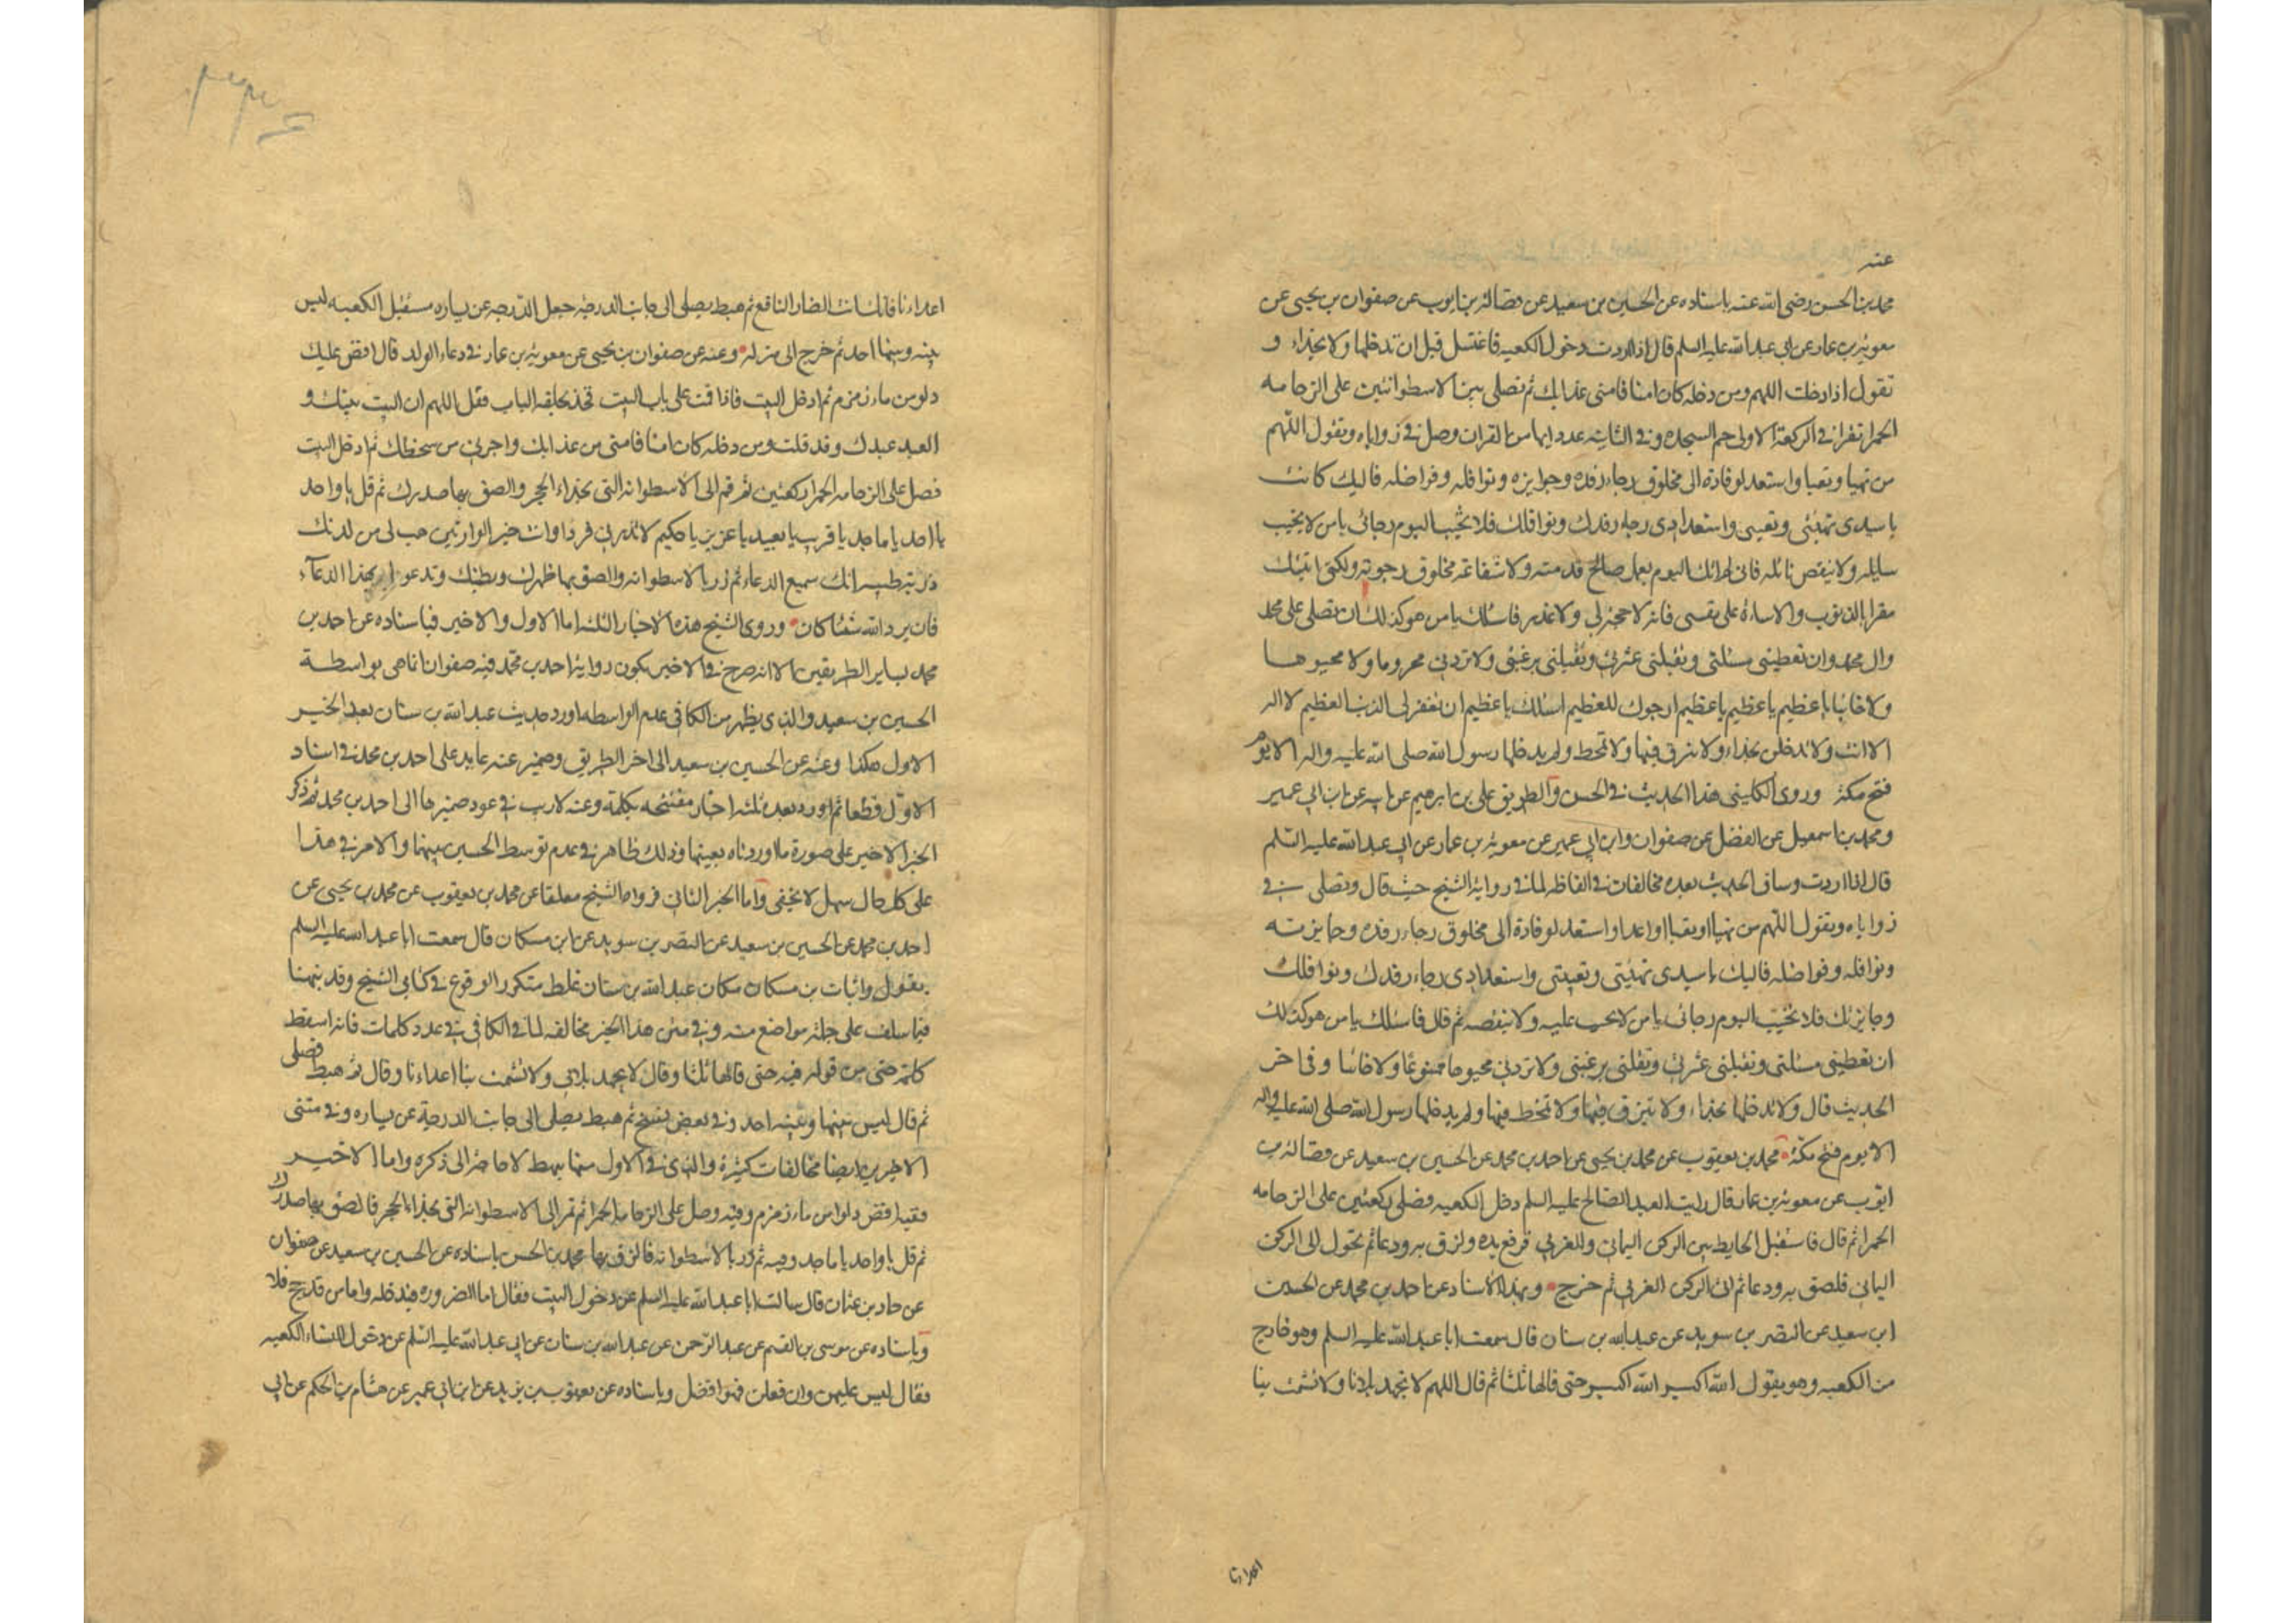 عنه
محمد بن الحسن رضى الله عنه باسناده عن الحسين بن سعيد عن فضالة بن ايوب عن صفوان بن يحيى عن
معوية بن عمار عن ابى عبد الله عليه السلم قال اذا اردت دخول الكعبه فاغتسل قبل ان تدخلها ولا بحذاء و
تقول اذا دخلت اللهم ومن دخله كان امنا فامنى عذابك ثم تصلى بين الاسطوانتين على الرخامه
الحمرا تقرا فى الركعة الاولى حم السجده وفى الثانيه عدد اياها من القران وصل فى زواياه وتقول اللهم
من تهيا وتعبا واستعد لوفادة الى مخلوق رجاء رفده وجوايزه ونوافله وفواضله فاليك كانت
يا سيدى تهيئتى وتعبيتى واستعدادى رجاء رفدك ونوافلك فلا تخيب اليوم رجائى يا من لا يخيب
سايله ولا ينقص نائله فانى لم اتك اليوم بعمل صالح قدمته ولا شفاعة مخلوق رجوته ولكنى اتيتك
مقرا بالذنوب والاساءة على نفسى فانه لا حجة لى ولا عذر فاسئلك يا من هو كذلك ان تصلى على محمد
وال محمد وان تعطينى مسئلتى وتقبلنى عثرتى وتقبلنى برغبتى ولا تردنى محروما ولا مجبوها
ولا خائبا يا عظيم يا عظيم يا عظيم ارجوك للعظيم اسئلك يا عظيم ان تغفر لى الذنب العظيم لا اله
الا انت ولا تدخلن بحذاء ولا تبزق فيها ولا تمخط ولم يدخلها رسول الله صلى الله عليه واله الا يوم
فتح مكة وروى الكلينى هذا الحديث فى الحسن والطريق على بن ابرهيم عن ابيه عن ابن ابى عمير
ومحمد بن اسمعيل عن الفضل عن صفوان وابن ابى عمير عن معوية بن عمار عن ابى عبد الله عليه السلم
قال اذا اردت وساق الحديث بعده مخالفات فى الفاظه لما فى رواية الشيخ حيث قال وتصلى فى
زواياه وتقول اللهم من تهيا او تعبا او اعد او استعد لوفادة الى مخلوق رجاء رفده وجايزته
ونوافله وفواضله فاليك يا سيدى تهيئتى وتعبيتى واستعدادى رجاء رفدك ونوافلك
وجايزتك فلا تخيب اليوم رجائى يا من لا يخيب عليه ولا ينقصه ثم قال فاسئلك يا من هو كذلك
ان تعطينى مسئلتى وتقبلنى عثرتى وتقبلنى برغبتى ولا تردنى مجبوها ممنوعا ولا خائبا وفى اخر
الحديث قال ولا تدخلها بحذاء ولا تبزق فيها ولا تمخط فيها ولم يدخلها رسول الله صلى الله عليه واله
الا يوم فتح مكة محمد بن يعقوب عن محمد بن يحيى عن احمد بن محمد عن الحسين بن سعيد عن فضالة بن
ايوب عن معوية بن عمار قال رايت العبد الصالح عليه السلم دخل الكعبه فصلى ركعتين على الرخامه
الحمرا ثم قال فاستقبل الحايط بين الركن اليمانى والغربى فرفع يده ولزق به ودعا ثم تحول الى الركن
اليمانى فلصق به ودعا ثم اتى الركن الغربى ثم خرج وبهذا الاسناد عن احمد بن محمد عن الحسين
ابن سعيد عن النضر بن سويد عن عبد الله بن سنان قال سمعت ابا عبد الله عليه السلم وهو خارج
من الكعبه وهو يقول الله اكبر الله اكبر حتى قالها ثلثا ثم قال اللهم لا تجهد بلاءنا ولا تشمت بنا
اعداءنا
اعداءنا فانك انت الضار النافع ثم هبط يصلى الى جانب الدرجة جعل الدرجة عن يساره مستقبل الكعبه ليس
بينه وبينها احد ثم خرج الى منزله وعنه عن صفوان بن يحيى عن معوية بن عمار فى دعاء الولد قال افض عليك
دلو من ماء زمزم ثم ادخل البيت فاذا قمت على باب البيت فخذ بحلقه الباب فقل اللهم ان البيت بيتك و
العبد عبدك وقد قلت ومن دخله كان امنا فامنى من عذابك واجرنى من سخطك ثم ادخل البيت
فصل على الرخامه الحمرا ركعتين ثم قم الى الاسطوانه التى بحذاء الحجر والصق بها صدرك ثم قل يا واحد
يا احد يا ماجد يا قريب يا بعيد يا عزيز يا حكيم لا تذرنى فردا وانت خير الوارثين هب لى من لدنك
ذرية طيبه انك سميع الدعاء ثم در بالاسطوانه والصق بها ظهرك وبطنك وتدعو بهذا الدعاء
فان يرد الله شيئا كان وروى الشيخ هذه الاخبار الثلثه اما الاول والاخير فباسناده عن احمد بن
محمد بساير الطريقين الا انه صرح فى الاخير بكون رواية احمد بن محمد فيه صفوان انما هى بواسطة
الحسين بن سعيد والذى يظهر من الكافى عدم الواسطه اورد حديث عبد الله بن سنان بعد الخبر
الاول هكذا وعنه عن الحسين بن سعيد الى اخر الطريق وضمير عنه عايد على احمد بن محمد فى اسناد
الاول قطعا ثم اورد بعده ثلثه اخبار مفتتحه بكلمة وعنه لا ريب فى عود ضميرها الى احمد بن محمد ثم ذكر
الخبر الاخير على صورة ما اوردناه بعينها وذلك ظاهر فى عدم توسط الحسين بينهما والامر فى هذا
على كل حال سهل لا يخفى واما الخبر الثانى فرواه الشيخ معلقا عن محمد بن يعقوب عن محمد بن يحيى عن
احمد بن محمد عن الحسين بن سعيد عن النضر بن سويد عن ابن مسكان قال سمعت ابا عبد الله عليه السلم
يقول واثبات بن مسكان مكان عبد الله بن سنان غلط متكرر الوقوع فى كتابى الشيخ وقد نبهنا
فيما سلف على جملة مواضع منه وفى متن هذا الخبر مخالفه لما فى الكافى فى عدد كلمات فانه اسقط
كلمة حتى من قوله فيه حتى قالها ثلثا وقال لا يجهد بلائى ولا تشمت بنا اعداءنا وقال ثم هبط فصلى
ثم قال ليس بينها وبينه احد وفى بعض نسخ ثم هبط يصلى الى جانب الدرجة عن يساره وفى متنى
الاخيرين ايضا مخالفات كثيرة والذى فى الاول منهما سهل لا حاجة الى ذكره واما الاخير
ففيه افض دلوا من ماء زمزم وفيه وصل على الرخامه الحمرا ثم قم الى الاسطوانه التى بحذاء الحجر فالصق بها صدرك
ثم قل يا واحد يا ماجد وفيه ثم در بالاسطوانه فالزق بها محمد بن الحسن باسناده عن الحسين بن سعيد عن صفوان
عن حماد بن عثمان قال سالت ابا عبد الله عليه السلم عن دخول البيت فقال اما الضروره فيدخله واما من قد حج فلا
وباسناده عن موسى بن القسم عن عبد الرحمن عن عبد الله بن سنان عن ابى عبد الله عليه السلم عن دخول النساء الكعبه
فقال ليس عليهن وان فعلن فهو افضل وباسناده عن يعقوب بن يزيد عن ابن ابى عمير عن هشام بن الحكم عن ابى